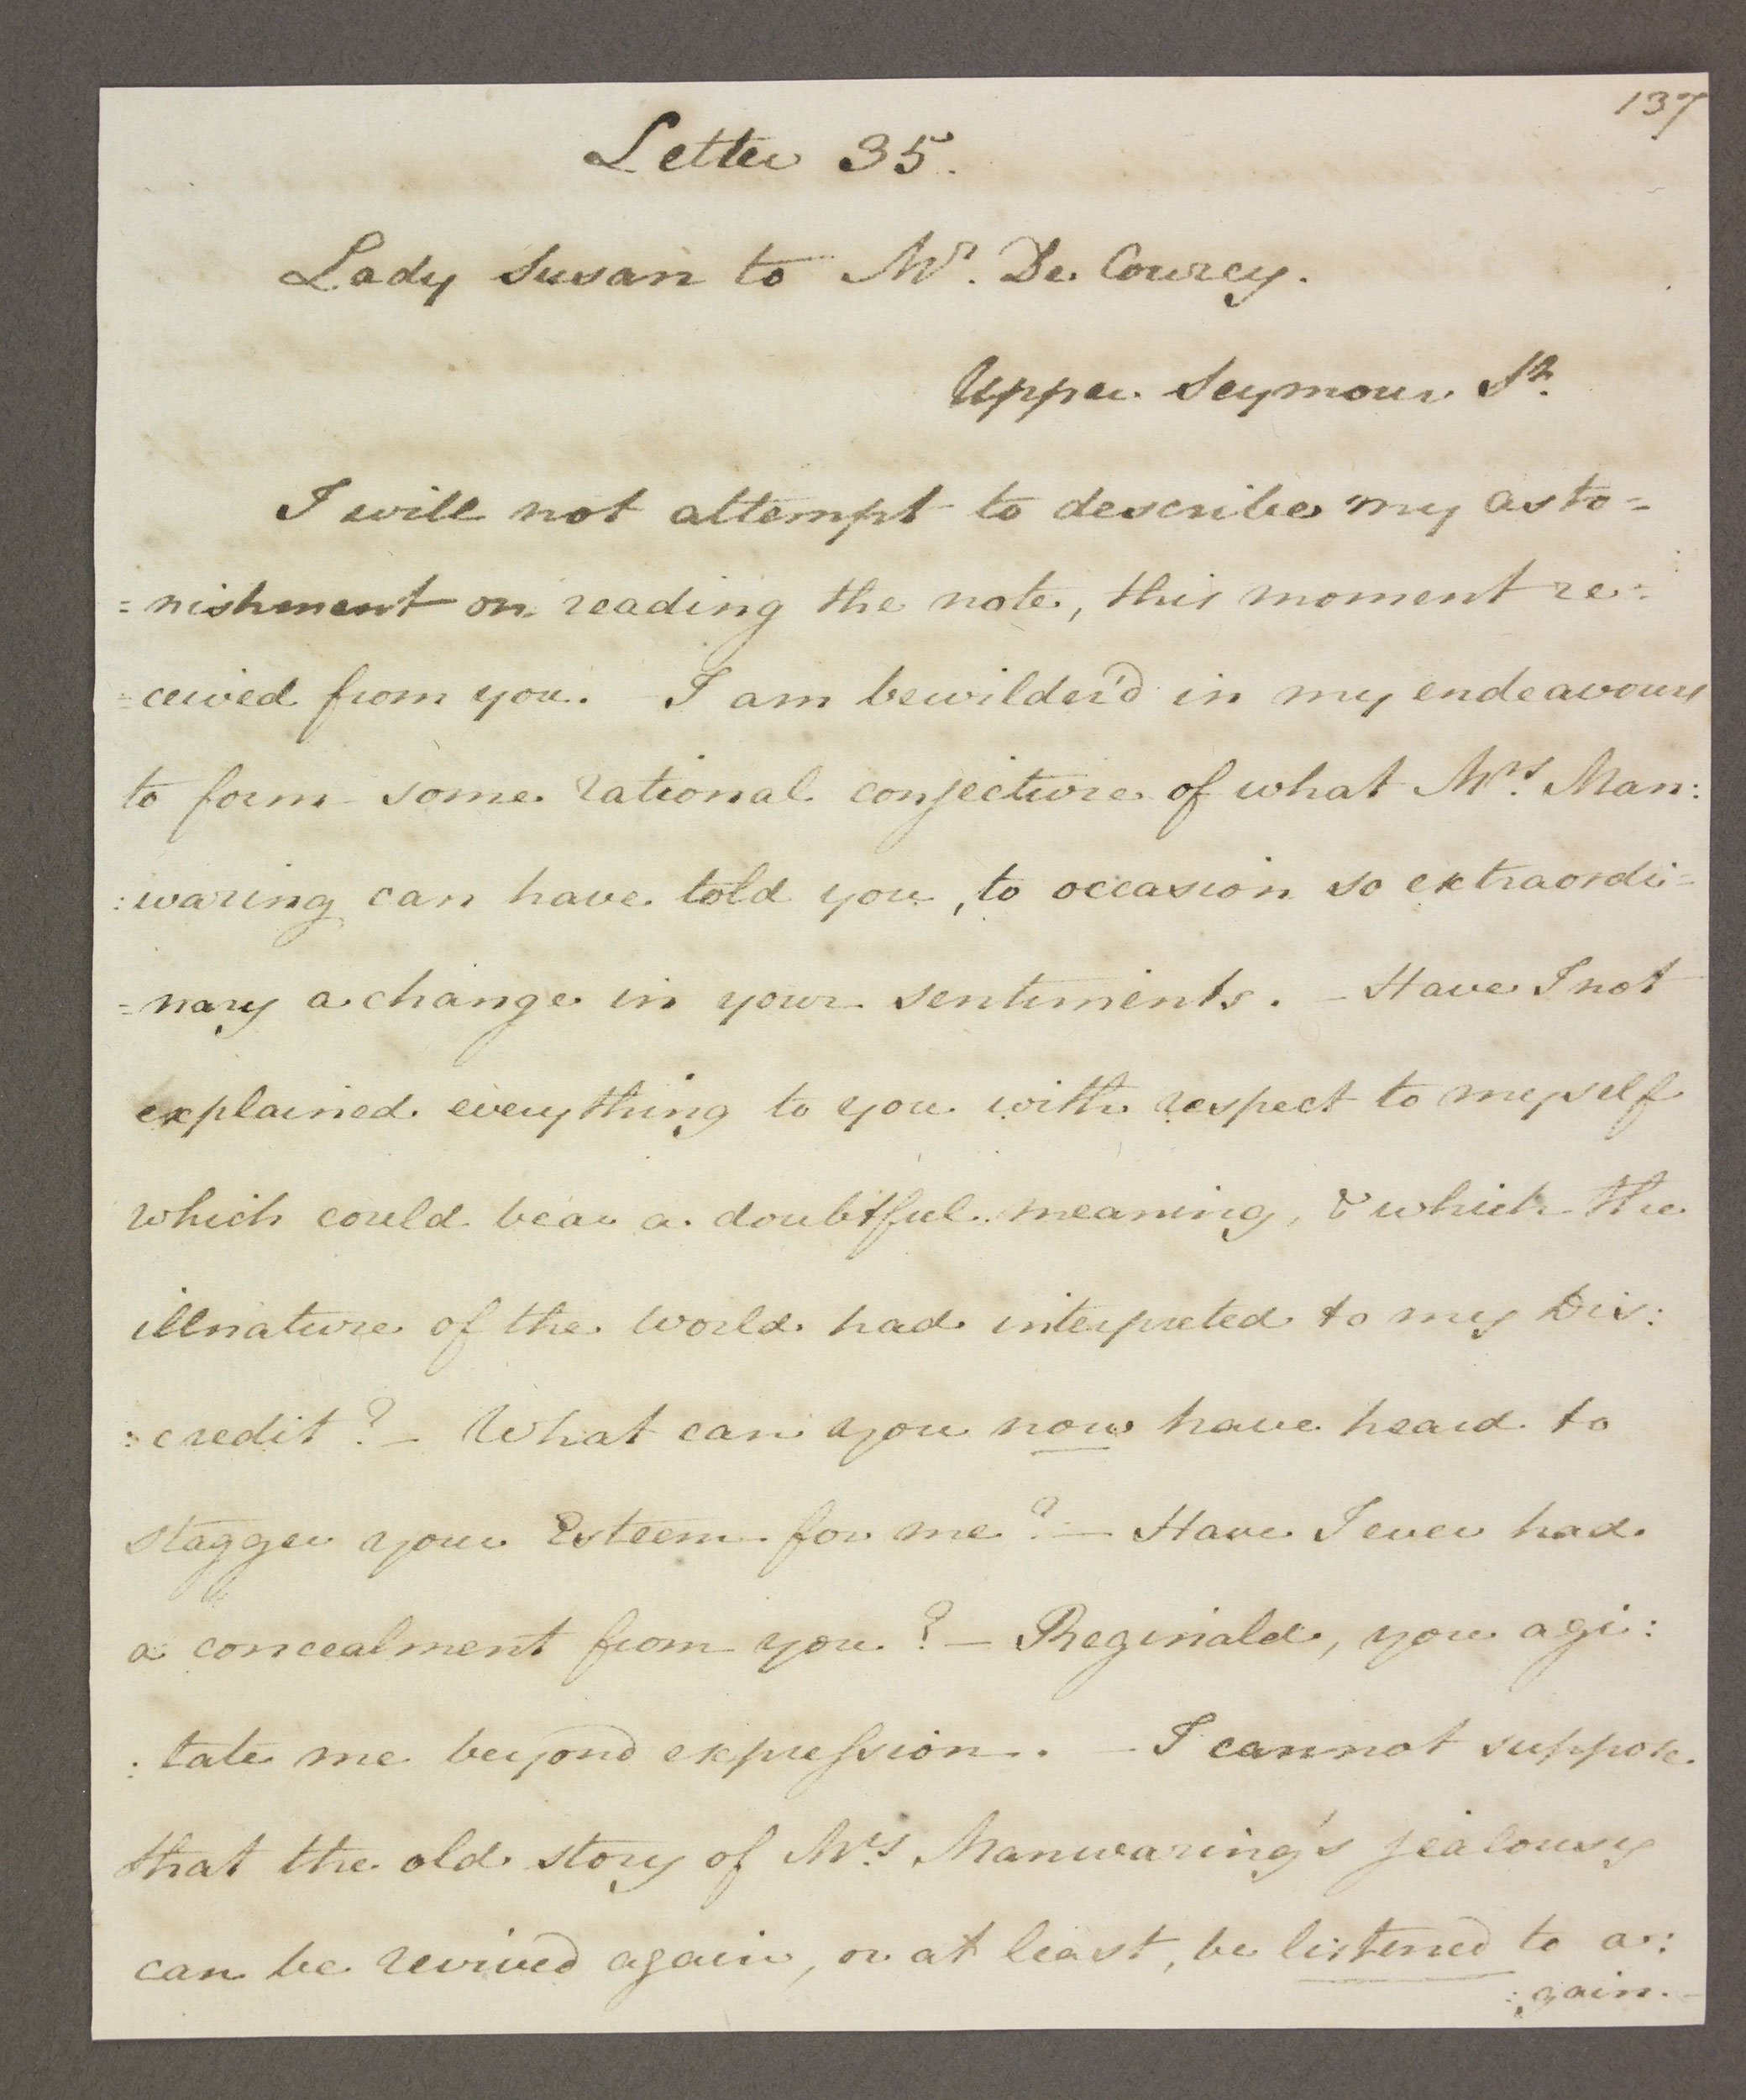 137
Letter 35.
Lady Susan to Mr. De Courcy.
Upper Seymour St.
I will not attempt to describe my asto=
=nishment on reading the note, this moment re=
=ceived from you. I am bewilder'd in my endeavours
to form some rational conjecture of what Mrs. Man:
:waring can have told you, to occasion so extraordi=
=nary a change in your sentiments. – Have I not
explained everything to you with respect to myself
which could bear a doubtful meaning, & which the
illnature of the World had interpreted to my Dis:
:credit? – What can you now have heard to
stagger your Esteem for me? – Have I ever had
a concealment from you? – Reginald, you agi:
:tate me beyond expression. – I cannot suppose
that the old story of Mrs. Manwaring's jealousy
can be revived again, or at least, be listened to a:
:gain. –